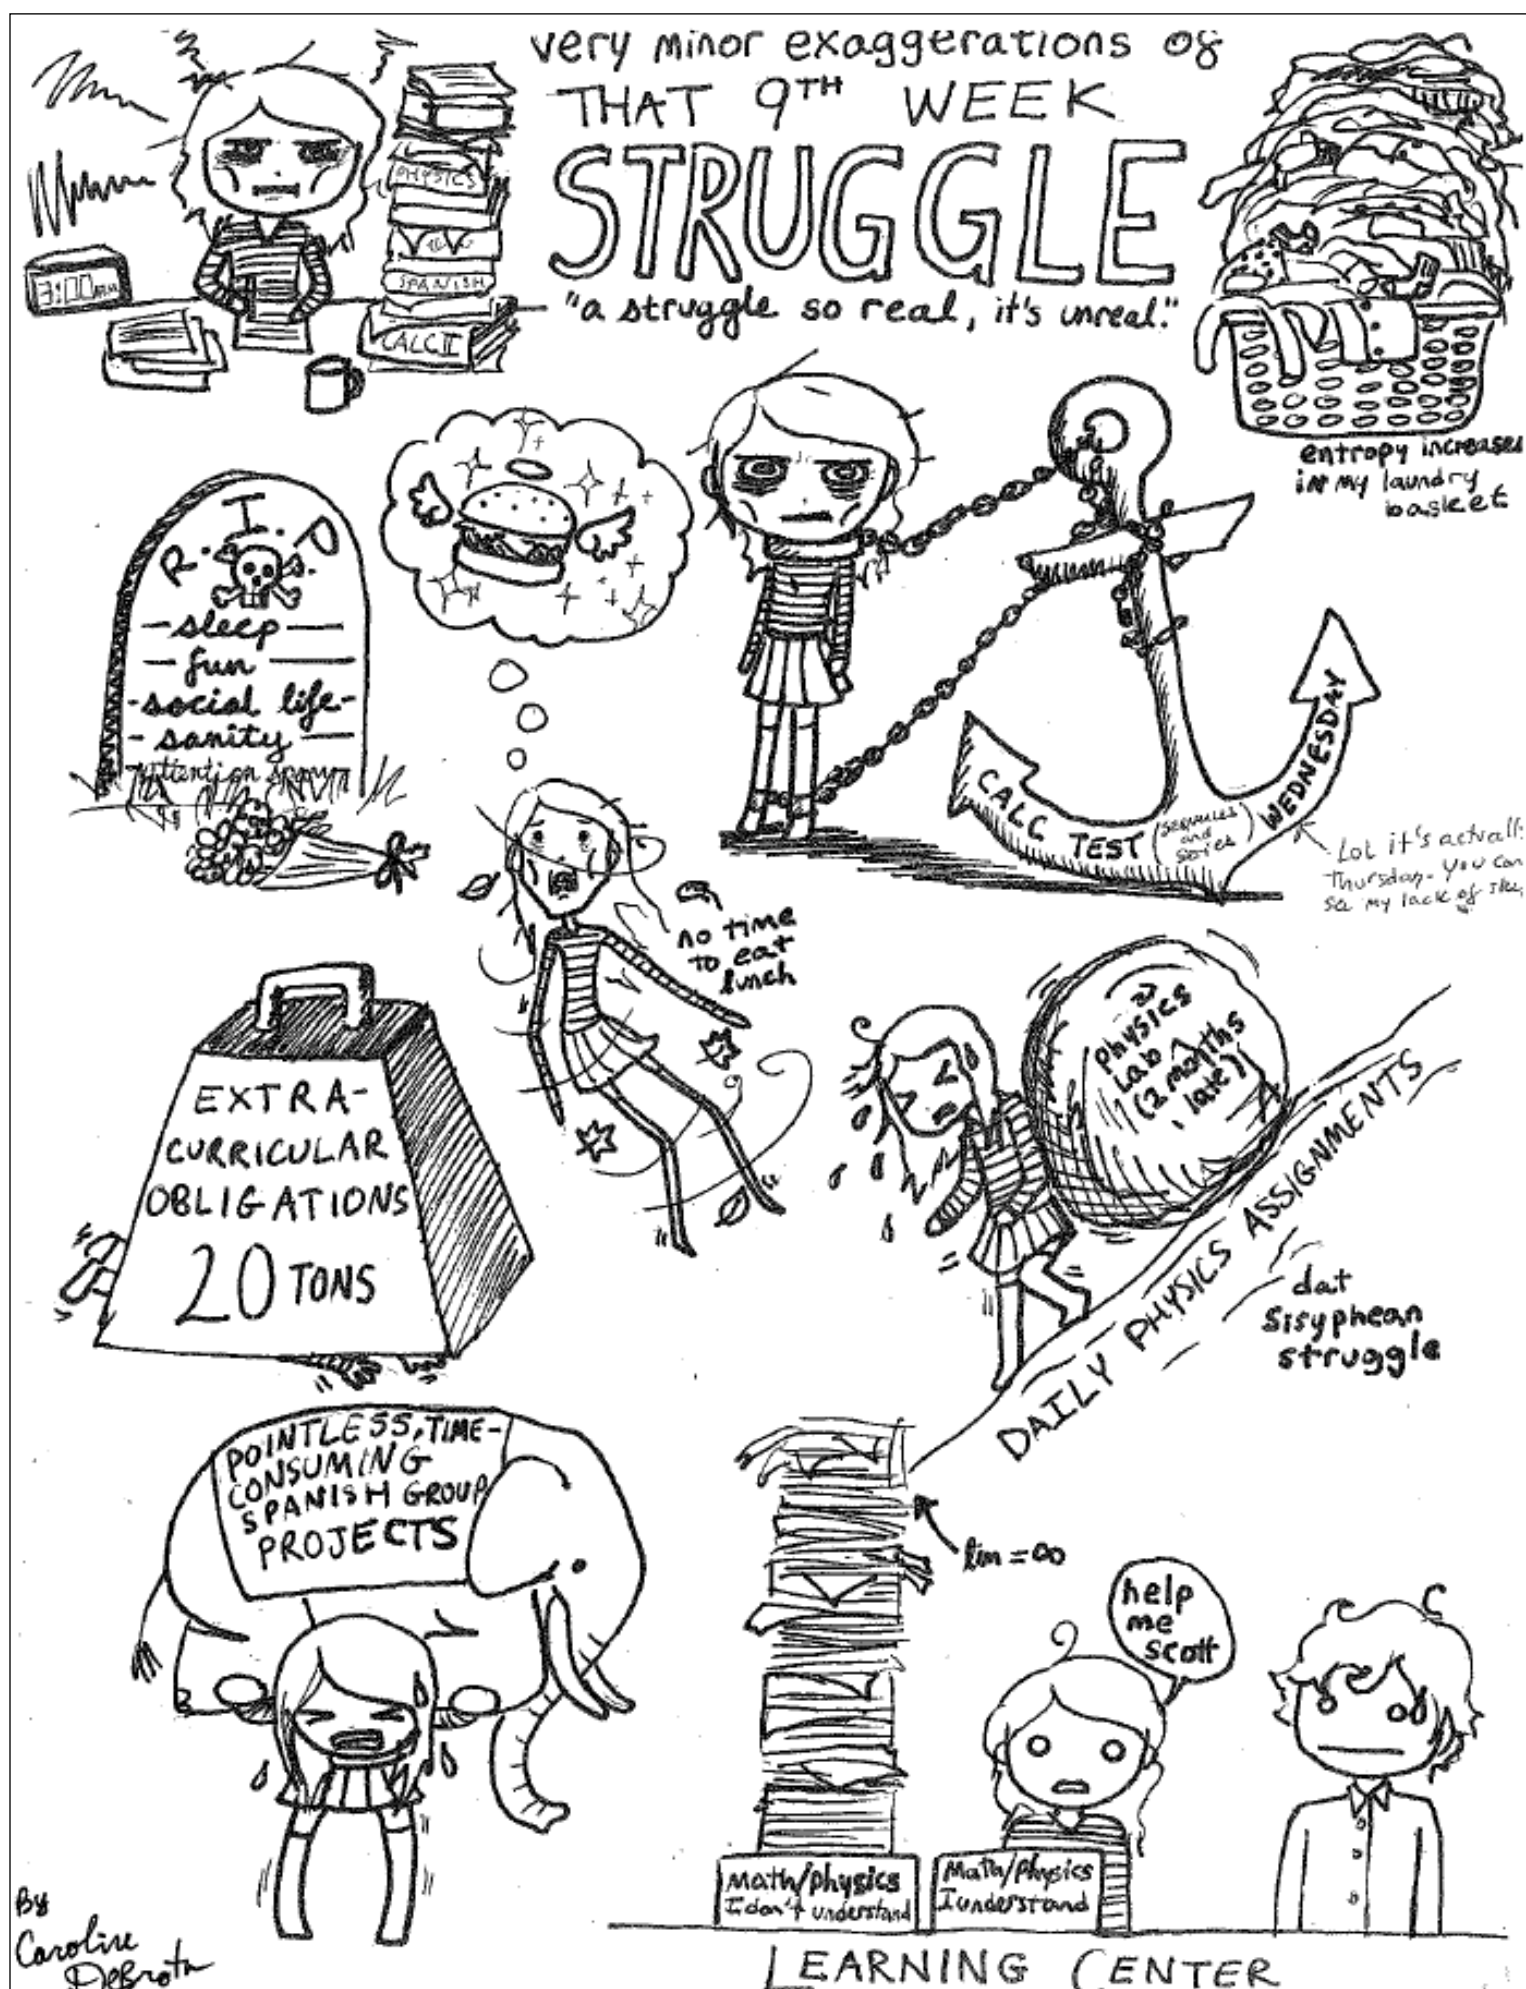 very minor exaggerations of
THAT 9TH WEEK
STRUGGLE
"a struggle so real, it's unreal."
3:00 AM
PHYSICS
SPANISH
CALC II
entropy increases
in my laundry
basket
R.I.P.
sleep
fun
social life
sanity
attention span
no time
to eat
lunch
CALC TEST (sequences
and
series) WEDNESDAY
Lol it's actually
Thursday. You can
see my lack of
EXTRA-
CURRICULAR
OBLIGATIONS
20 TONS
physics
Lab
(2 months
late)
DAILY PHYSICS ASSIGNMENTS
dat
Sisyphean
struggle
POINTLESS, TIME-
CONSUMING
SPANISH GROUP
PROJECTS
lim = ∞
help
me
scott
Math/physics
I don't understand
Math/physics
I understand
LEARNING CENTER
By
Caroline
DeBrota